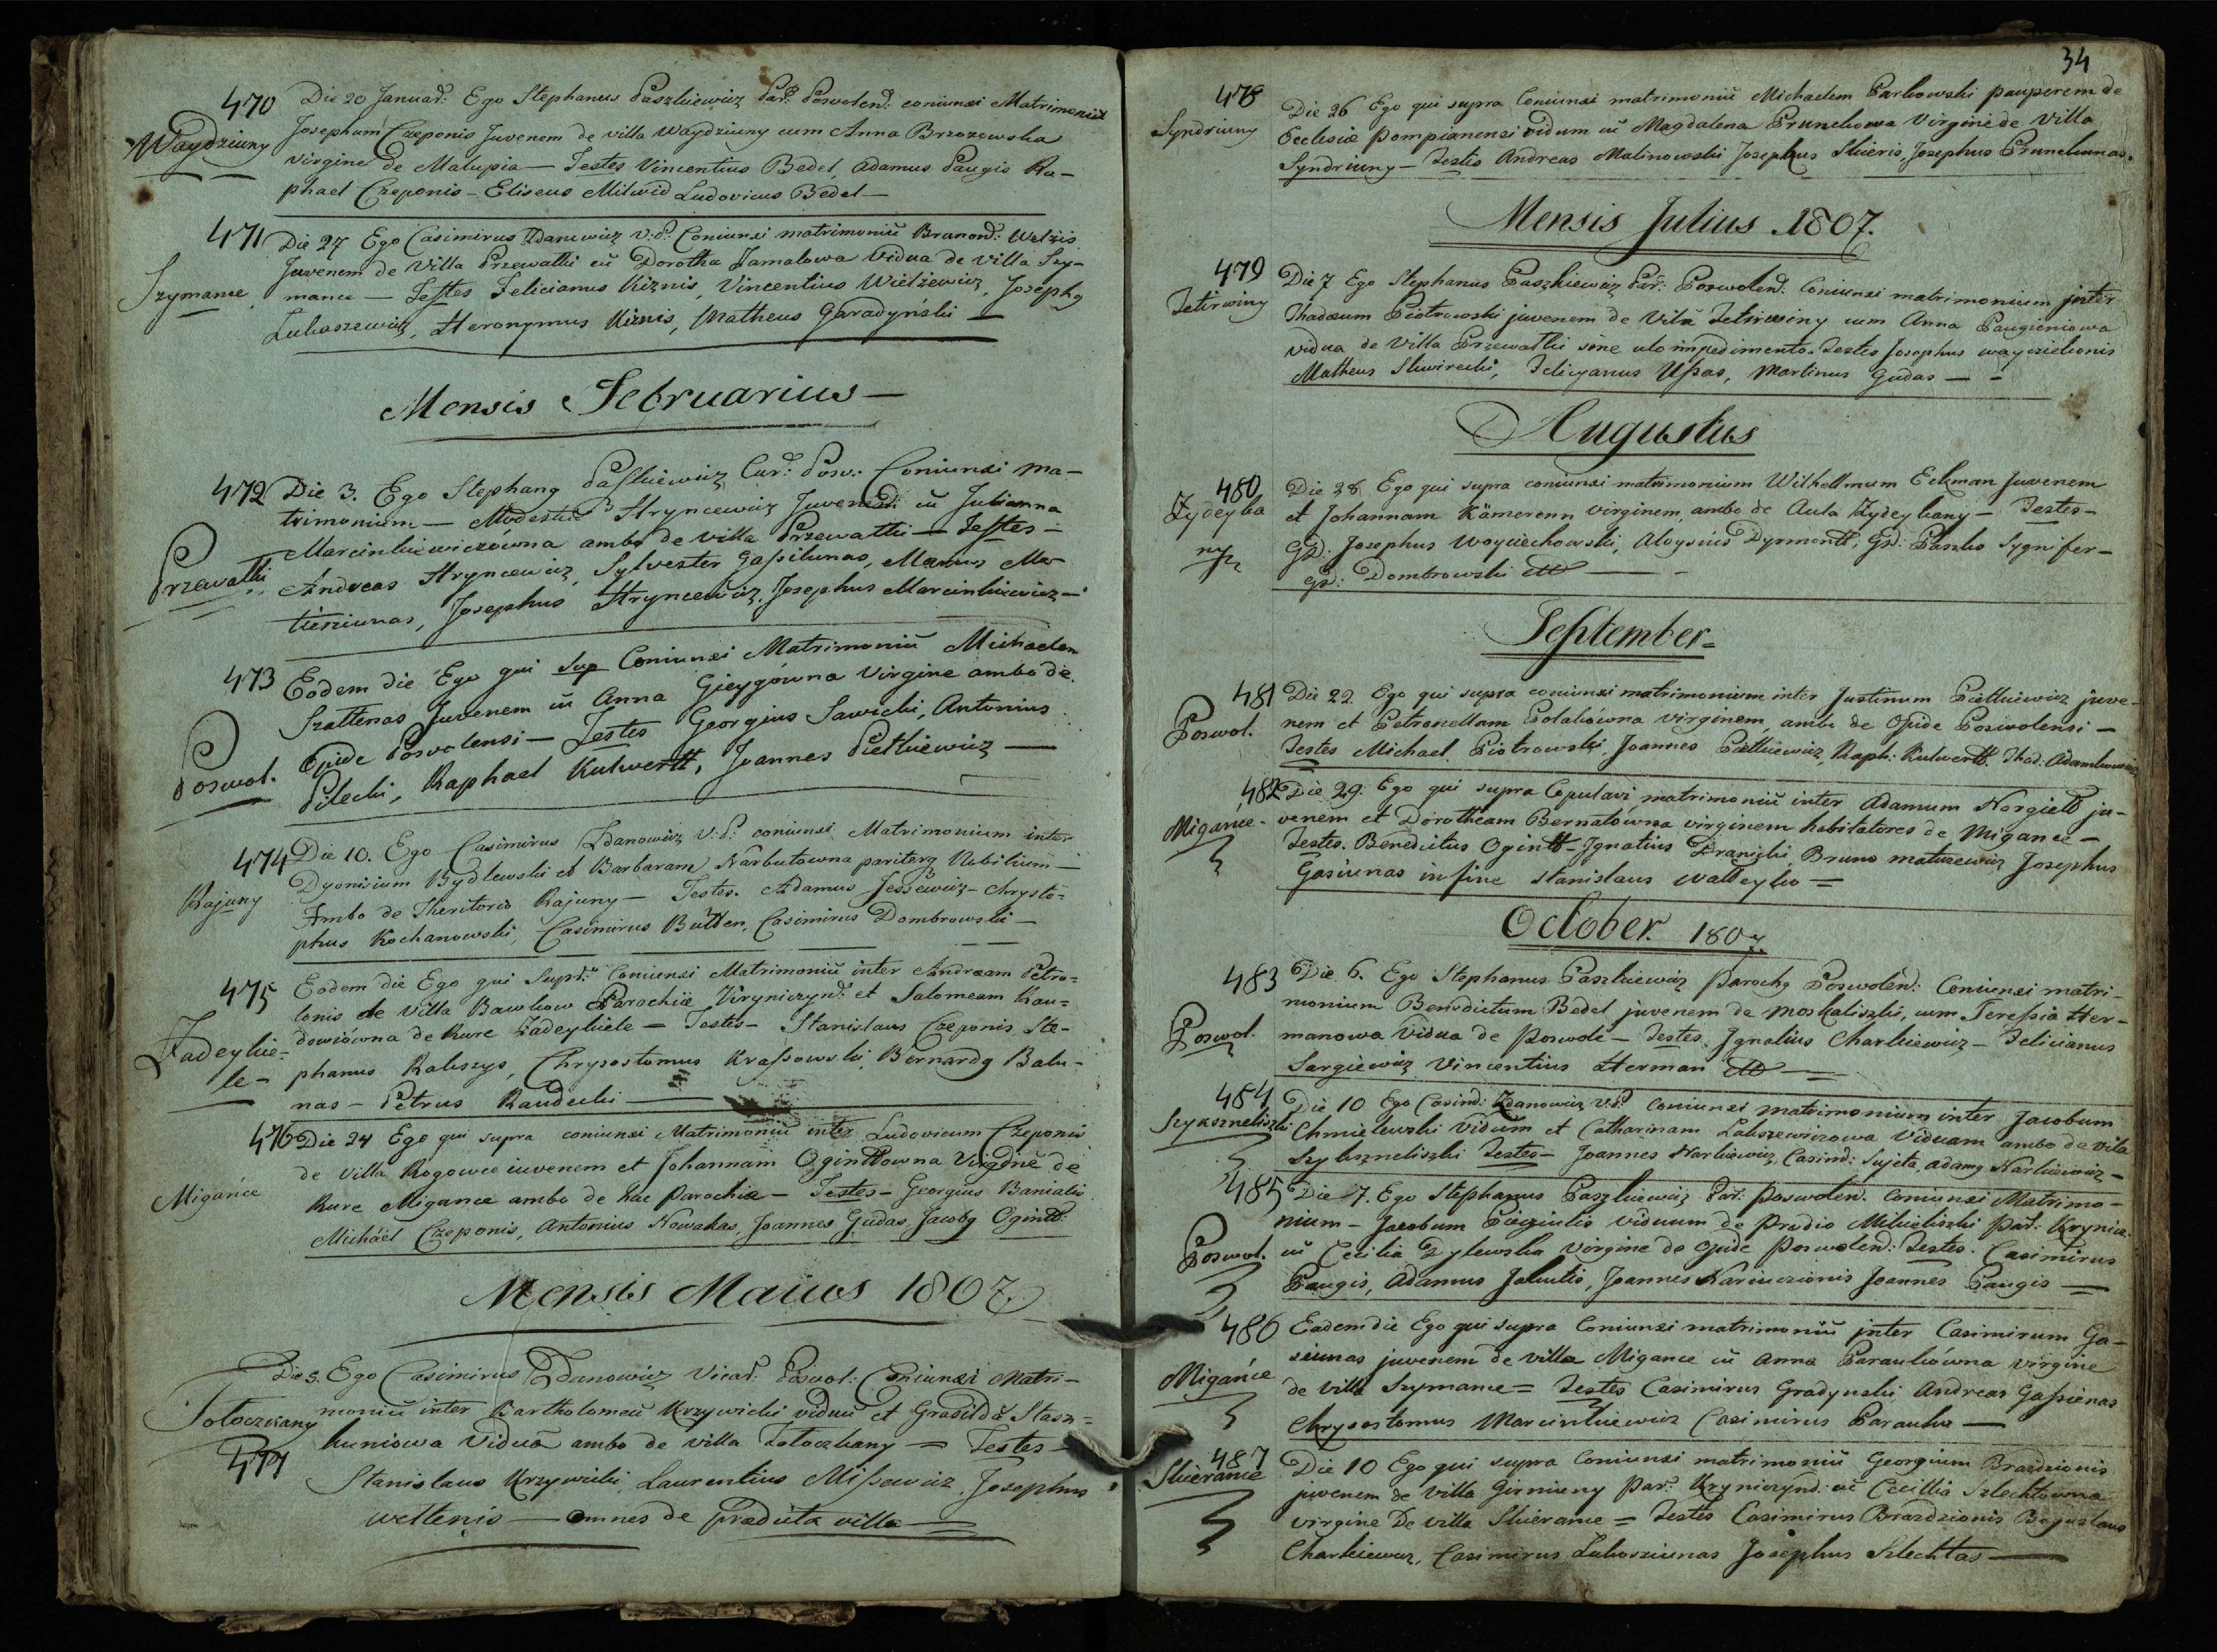 470
Waydziuny
Die 20 Januar: Ego Stephanus Paszkiewicz Par: Poswolen: coniunxi Matrimonium
Josephum Czeponis Juvenem de villa Waydziuny cum Anna Brzozowska
virgine de Malupia — Testes Vincentius Bedel, Adamus Paugis Ra-
phael Czeponis - Eliseus Milwid Ludovicus Bedel —
471
Szymance
Die 27 Ego Casimirus Zdanowicz V:P: Coniunxi matrimoniū Welżis
Juvenem de Villa Przewałki cū Dorotha Jamałowa Vidua de Villa Szy-
mance — Testes Felicianus Kiznis, Vincentius Wielżewicz, Josephg
Lukaszewicz, Hieronymus Kiznis, Matheus Garadyński —
Mensis Februarius —
472
Przewałki
Die 3. Ego Stephang Paszkiewicz Cur: Posw: Coniunxi ma-
trimonium — Modestū Hryncewicz Juvenem cū Julianna
Marcinkiewiczówna ambo de villa Przewałki — Testes -
Andreas Hryncewicz, Sylvester Gassiunas, Ma-
tieziunas, Josephus Hryncewicz, Josephus Marcinkiewicz —
473
Poswol.
Eodem die Ego qui sup Coniunxi Matrimoniū Michaelem
Szattenas Juvenem cū Anna Gieygówna Virgine ambo de
Opide Poswolensi — Testes Georgius Sawicki, Antonius
Pilecki, Raphael Kulwertt, Joannes Pietkiewicz —
474
Rajuny
Die 10. Ego Casimirus Zdanowicz V:P: coniunxi Matrimonium inter
Dyonisium Bydlewski et Barbaram Narbutowna pariterg Nobilium —
Ambo de Theritorio Rajuny — Testes. Adamus Jessewicz - Chrysto=
phus Kochanowski, Casimirus Butler, Casimirus Dombrowski —
475
Żadeykie-
le -
Eodem die Ego qui Supr: Coniunxi Matrimoniū inter Andream Petro=
lonis de Villa Bawkow Parochiæ Kryniczyn: et Salomeam Kau=
dowiówna de Rure Żadeykiele = Testes - Stanislaus Czeponis, Ste-
phanus Rakszys, Chrysostomus Krassowski, Bernardg Balu-
nas - Petrus Raudecki —
476
Migańce
Die 24 Ego qui supra coniunxi Matrimoniū inter Ludovicum Czeponis
de Villa Rogowce iuvenem et Johannam Ogintowna Virgine de
Rure Migance ambo de hac Parochia — Testes - Georgius Banialis
Michäel Czeponis, Antonius Nowakas, Joannes Gudas, Jacobg Ogintt:
Mensis Maius 1807
Totoczkany
477
Die 5. Ego Casimirus Zdanowicz Vicar: Poswol: Coniunxi Matri-
moniū inter Bartholomeū Krzywicki viduū et Grasildā Stasz=
kuniowa Viduā ambo de villa Totoczkany = Testes -
Stanislaus Krzywicki, Laurentius Missewicz, Josephus
Wettenis — omnes de prædicta villa —
34
478
Syndriuny
Die 26 Ego qui supra Coniunxi matrimoniū Michaelem Parkowski pauperem de
Ecclesiæ Pompianensi vidum cū Magdalena Prunckowa Virgine de Villa
Syndriuny — Testis Andreas Malinowski Josephus Skieris, Josephus Prunckunas.
Mensis Julius 1807.
479
Tetirwiny
Die 7 Ego Stephanus Paszkiewicz Par: Poswolen: Coniunxi matrimonium inter
Thadæum Piotrowski juvenem de Vila Tetirwiny cum Anna Paugieniowa
vidua de Villa Przewałki sine ulo impedimento. Testes Josephus waycziekonis
Matheus Skwirecki, Felicyanus Upas, Martinus Gudas —
Augustus
480
Żydeyka
ny
Die 28 Ego qui supra coniunxi matrimonium Wilhelmum Eckman Juvenem
et Johannam Kämerenn virginem, ambo de Aula Żydeykany — Testes -
Gd: Josephus Woyciechowski, Aloysius Dyrmontt, Gd: Paszko Sygnifer —
Gd: Dombrowski
September =
481
Poswol.
Die 22. Ego qui supra coniunxi matrimonium inter Justinum Pietkiewicz juve-
nem et Petronellam Polakówna virginem, ambo de Opide Poswolensi —
Testes Michael Piotrowski, Joannes Pietkiewicz, Raph: Kulwertt. Thad: Adamkowicz
482
Migance -
Die 29. Ego qui supra Copulavi matrimoniū inter Adamum Norgiełł ju-
venem et Dorotheam Bernatówna virginem habitatores de Migance —
Testes. Benedictus Ogintt - Ignatius Draniżki, Bruno matuzewicz Josephus
Gasiunas in fine Stanislaus Walleyko =
October. 1807.
483
Poswol.
Die 6. Ego Stephanus Paszkiewicz Parochg Poswolen: Coniunxi matri-
monium Benedictum Bedel juvenem de Moskaliszki, cum Teressia Her-
manowa Vidua de Poswole — Testes. Ignatius Charkiewicz - Felicianus
Sargiewicz Vincentius Herman
484
Szykszneliszki
Die 10 Ego Casim: Zdanowicz V:P: coniunxi matrimonium inter Jacobum
Chmielewski Vidum et Catharinam Lukszewiczowa Viduam ambo de vila
Szykszneliszki Testes - Joannes Narkiewicz, Casim: Sujeta, Adamg Narkiewicz —
485
Poswol.
Die 7. Ego Stephanus Paszkiewicz Par: Poswolen. Coniunxi Matrimo-
nium - Jacobum Piegziulis viduum de Prædio Mikieliszki Par: Krynicz:
cū Cecilia Dylewska virgine de Opide Poswolen: Testes. Casimirus
Paugis, Adamus Jakutis, Joannes Karinczionis Joannes Paugis —
486
Migańce
Eadem die Ego qui supra Coniunxi matrimoniū inter Casimirum Ga-
siunas juvenem de villa Migance cū Anna Paraukówna virgine
de Villa Szymance = Testes Casimirus Gradynski, Andreas Gassienas
Chrysostomus Marcinkiewicz Casimirus Parauka —
487
Skierańce
Die 10 Ego qui supra Coniunxi matrimoniū Georgium Brazdzionis
juvenem de Villa Girniuny Par: Kryniczyn: cū Cecillia Szlechtowna
virgine De villa Skierance = Testes Casimirus Brazdzionis Boguslaus
Charkiewicz, Casimirus Lukosziunas Josephus Szlechtas —